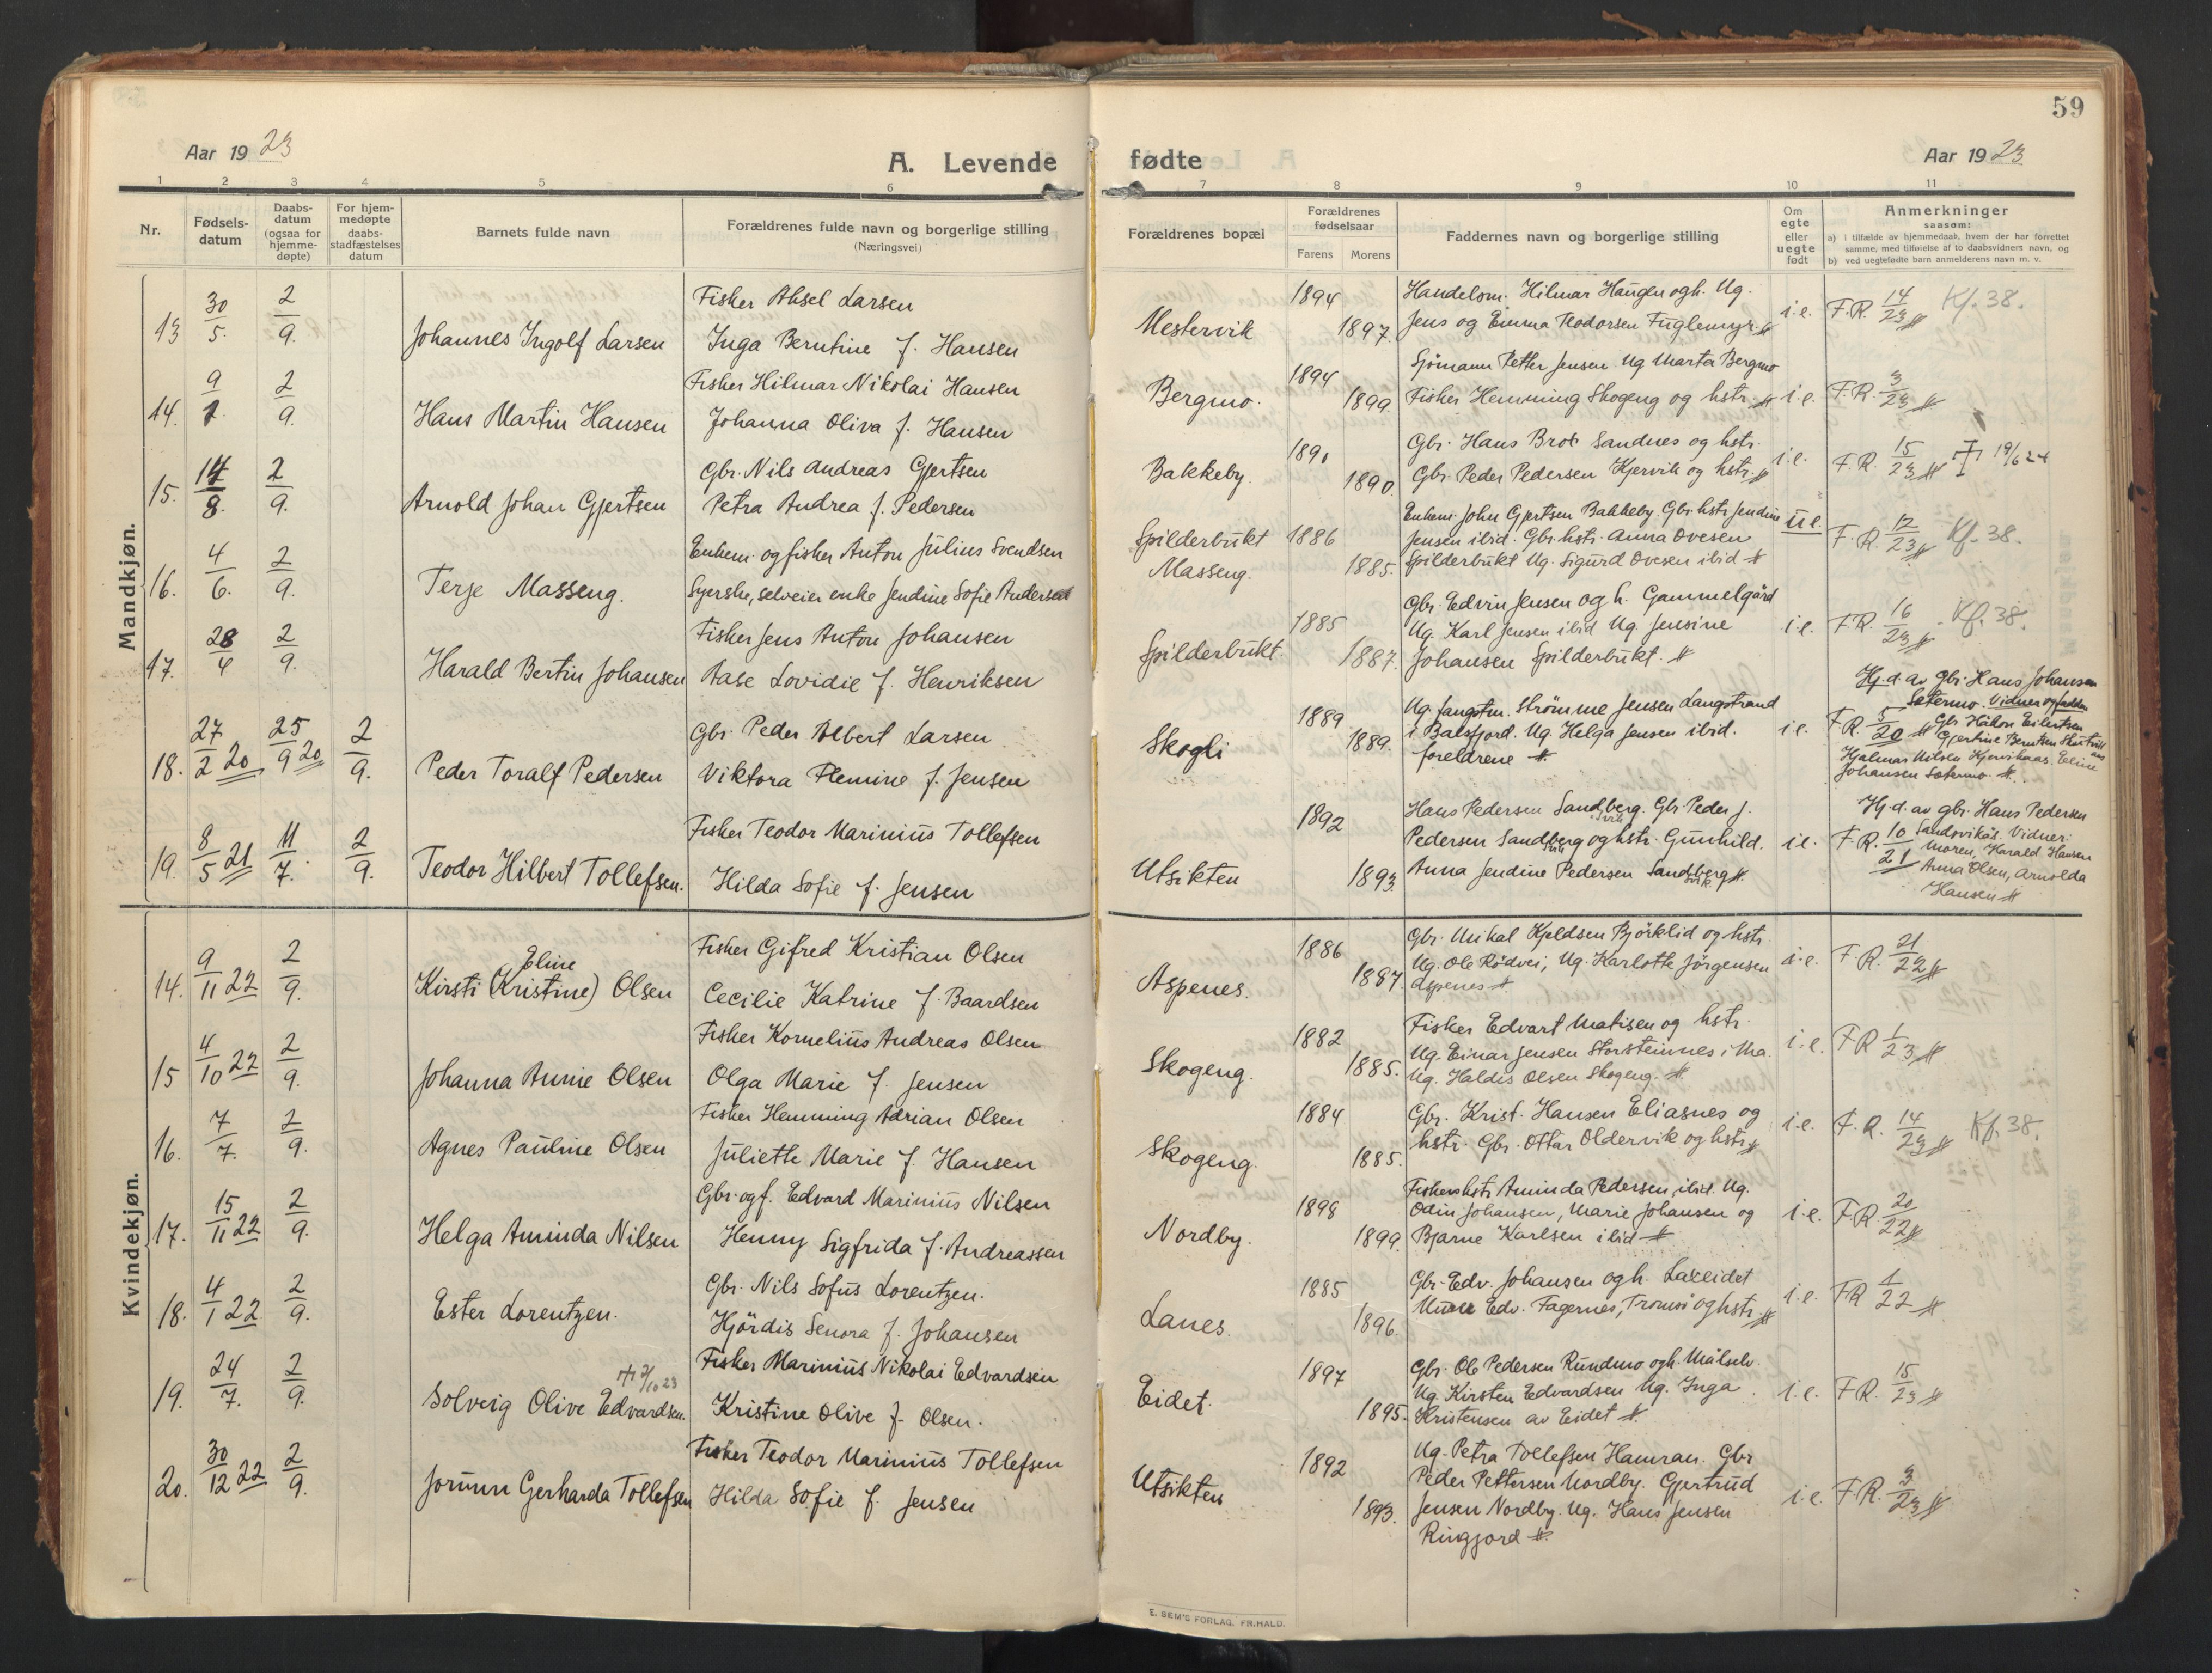 59
Aar 1923
A. Levende fødte
Aar 1923
1 2 3 4 5 6 7 8 9 10 11
Nr.
Fødsels-
datum
Daabs-
datum
(ogsaa for
hjemme-
døpte)
For hjem-
medøpte
daabs-
stadfæstelses
datum
Barnets fulde navn
Forældrenes fulde navn og borgerlige stilling
(Næringsvei)
Forældrenes bopæl
Forældrenes
fødselsaar
Farens Morens
Faddernes navn og borgerlige stilling
Om
egte
eller
uegte
født
Anmerkninger
saasom:
a) i tilfælde av hjemmedaab, hvem der har forrettet
samme, med tilføielse af to daabsvidners navn, og
b) ved uegtefødte barn anmelderens navn m. v.
Mandkjøn.
13 30/5. 2/9. Johannes Ingolf Larsen
Fisker Aksel Larsen
Inga Berntine f. Hansen
Mestervik 1894 1897.
Handelsm. Hilmar Haugen og h. Ug.
Jens og Emma Teodorsen Fuglemyr.
i.e. F.R. 14/23 Kf. 38.
14. 9/1. 2/9. Hans Martin Hansen
Fisker Hilmar Nikolai Hansen
Johanna Oliva f. Hansen
Bergmo. 1894 1899
Sjömann Petter Jensen Ug Marta Bergmo
Fisker Hemming Skogeng og hstr.
i.e. F.R. 3/23
15. 14/8. 2/9. Arnold Johan Gjertsen
Gbr. Nils Andreas Gjertsen
Petra Andrea f. Pedersen
Bakkeby. 1891 1890
Gbr. Hans Brox Sandnes og hstr.
Gbr. Peder Pedersen Kjervik og hstr.
i.e. F.R. 15/23 19/6 24
16. 4/6. 2/9. Terje Masseng.
Enkem. og fisker Anton Julius Svendsen
Syerske, selveier enke Jendine Sofie Andersen
Spilderbukt
Masseng. 1886 1885.
Enkem. John Gjertsen Bakkeby. Gbr. hstr Jendine
Jensen ibid. Gbr. hstr. Anna Ovesen
Spilderbukt Ug. Sigurd Ovesen ibid
u.e. F.R. 12/23 Kf. 38.
17. 28/4 2/9. Harald Bertin Johansen
Fisker Jens Anton Johansen
Aase Lovidie f. Henriksen
Spilderbukt. 1885 1887.
Gbr. Edvin Jensen og h. Gammelgård
Ug. Karl Jensen ibid Ug Jensine
Johansen Spilderbukt.
i.e. F.R. 16/23 Kf. 38.
18. 27/2 20 25/9 20 2/9. Peder Toralf Pedersen
Gbr. Peder Albert Larsen
Viktora Flemine f. Jensen
Skogli 1889 1889.
Ug. fangstm. Strømme Jensen Langstrand
i Balsfjord. Ug Helga Jensen ibid.
foreldrene
i.e. F.R. 5/20
Hj.d. av Gbr. Hans Johansen
Sætermo. Vidner og faddere
Gbr Håkon Eilertsen
Gjertine Berntsen
Hjalmar Nilsen Eline
Johansen Sætermo.
19. 8/5 21 11/7. 2/9. Teodor Hilbert Tollefsen.
Fisker Teodor Marinius Tollefsen
Hilda Sofie f. Jensen
Utsikten 1892 1893
Hans Pedersen Sandberg. Gbr. Peder J.
Pedersen Sandberg og hstr. Gunhild.
Anna Jendine Pedersen Sandberg
i.e. F.R. 10/21
Hj.d. av gbr. Hans Pedersen
Sandsvikås. Vidner:
Moren, Harald Hansen
Anna Olsen, Arnolda
Hansen
Kvindekjøn.
14. 9/11 22 2/9. Kirsti (Kristine) Eline Olsen
Fisker Gifred Kristian Olsen
Cecilie Katrine f. Baardsen
Aspenes. 1886 1887.
Gbr. Mikal Kjeldsen Björklid og hstr.
Ug. Ole Rødvei, Ug. Karlotte Jörgensen
Aspenes
i.e. F.R. 21/22
15 4/10 22 2/9. Johanna Annie Olsen
Fisker Kornelius Andreas Olsen
Olga Marie f. Jensen
Skogeng. 1882 1885.
Fisker Edvart Matisen og hstr.
Ug. Einar Jensen Storsteinnes i Ma.
Ug. Haldis Olsen Skogeng.
i.e. F.R 1/23
16. 7/7. 2/9. Agnes Pauline Olsen
Fisker Hemming Adrian Olsen
Juliette Marie f. Hansen
Skogeng. 1884 1885.
Gbr. Krist. Hansen Eliasnes og
hstr. Gbr. Ottar Oldervik og hstr
i.e. F.R. 14/23 Kf. 38.
17. 15/11 22 2/9. Helga Aminda Nilsen
Gbr. og f. Edvard Marinius Nilsen
Henny Sigfrida f. Andreassen
Nordby. 1898 1899.
Fiskers hstr Aminda Pedersen ibid. Ug.
Odin Johansen, Marie Johansen og
Bjarne Karlsen ibid
i.e. F.R. 20/22
18. 4/1 22 2/9. Ester Lorentzen.
Gbr. Nils Sofus Lorentzen.
Hjördis Senora f. Johansen
Lanes. 1885 1896.
Gbr. Edv. Johansen og h. Lakseidet
Edv. Fagernes, Tromsö og hstr.
i.e. FR 1/22
19. 24/7. 2/9. Solveig Olive Edvardsen.
Fisker Marinius Nikolai Edvardsen
Kristine Olive f. Olsen.
Eidet. 1897 1895.
Gbr. Ole Pedersen Rundmo og h. Målselv.
Ug. Kirsten Edvardsen Ug. Inga
Kristensen av Eidet
i.e. F.R. 15/23
20. 30/12 22 2/9. Jorunn Gerharda Tollefsen
Fisker Teodor Marinius Tollefsen
Hilda Sofie f. Jensen
Utsikten 1892 1893.
Ug. Petra Tollefsen Hamran. Gbr
Peder Pettersen Nordby. Gjertrud
Jensen Nordby. Ug. Hans Jensen
Ringjord
i.e. F.R. 3/23
E. SEM'S FORLAG, FR.HALD.